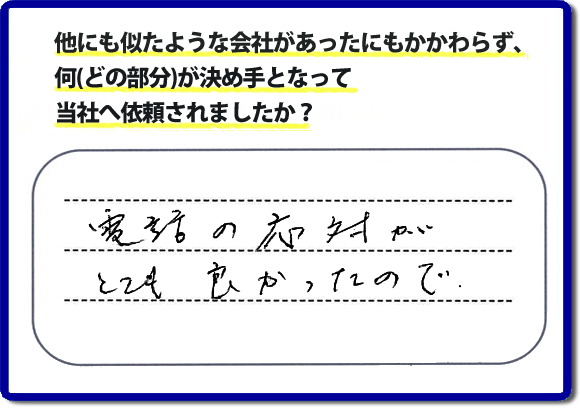 他にも似たような会社があったにもかかわらず、
何(どの部分)が決め手となって
当社へ依頼されましたか？
電話の応対が
とても良かったので.